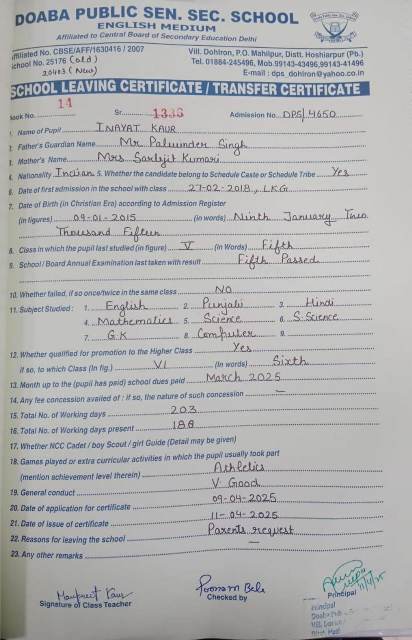 DOABA PUBLIC SEN. SEC. SCHOOL
ENGLISH MEDIUM
Affiliated to Central Board of Secondary Education Delhi
Affiliated No. CBSE/AFF/1630416 / 2007 Vill. Dohlron, P.O. Mahilpur, Distt. Hoshiarpur (Pb.)
School No. 25176 (old) Tel. 01884-245496, Mob.99143-43496,99143-41496
20403 (New) E-mail : dps_dohiron@yahoo.co.in
SCHOOL LEAVING CERTIFICATE / TRANSFER CERTIFICATE
Book No. 14 Sr. 1336 Admission No. DPS/4650
1. Name of Pupil INAYAT KAUR
2. Father's Guardian Name Mr. Palwinder Singh
3. Mother's Name Mrs Sarbjit Kumari
4. Nationality Indian 5. Whether the candidate belong to Schedule Caste or Schedule Tribe Yes
6. Date of first admission in the school with class 27-02-2018, LKG
7. Date of Birth (in Christian Era) according to Admission Register
(in figures) 09-01-2015 (in words) Ninth January Two
Thousand Fifteen
8. Class in which the pupil last studied (in figure) V (in Words) Fifth
9. School / Board Annual Examination last taken with result Fifth Passed
10. Whether failed, if so once/twice in the same class NO
11. Subject Studied : 1. English 2. Punjabi 3. Hindi
4. Mathematics 5. Science 6. S.Science
7. G.K 8. Computer 9.
12. Whether qualified for promotion to the Higher Class Yes
if so, to which Class (in fig.) VI (in words) Sixth
13. Month up to the (pupil has paid) school dues paid March 2025
14. Any fee concession availed of : if so, the nature of such concession —
15. Total No. of Working days 203
16. Total No. of Working days present 188
17. Whether NCC Cadet / boy Scout / girl Guide (Detail may be given)
18. Games played or extra curricular activities in which the pupil usually took part
(mention achievement level therein) Athletics
19. General conduct V Good
20. Date of application for certificate 09-04-2025
21. Date of issue of certificate 11-04-2025
22. Reasons for leaving the school Parents request
23. Any other remarks —
Manpreet Kaur Poonam Bala
Signature of Class Teacher Checked by Principal
Principal